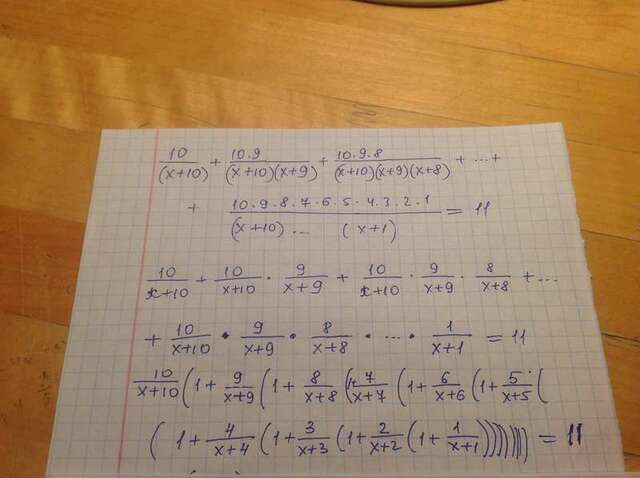 10/(x+10) + 10·9/(x+10)(x+9) + 10·9·8/(x+10)(x+9)(x+8) + ...+
+ 10·9·8·7·6·5·4·3·2·1/(x+10)...(x+1) = 11
10/x+10 + 10/x+10 · 9/x+9 + 10/x+10 · 9/x+9 · 8/x+8 + ...
+ 10/x+10 · 9/x+9 · 8/x+8 · ... · 1/x+1 = 11
10/x+10 (1+ 9/x+9 (1+ 8/x+8 (1+ 7/x+7 (1+ 6/x+6 (1+ 5/x+5 (
( 1+ 4/x+4 (1+ 3/x+3 (1+ 2/x+2 (1+ 1/x+1))))))))) = 11